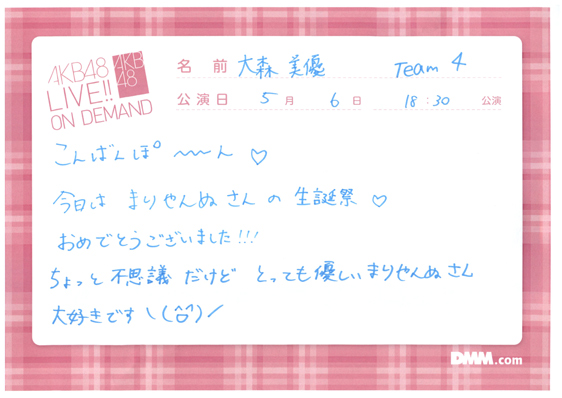 AKB48
LIVE!!
ON DEMAND
AKB
48
名 前 大森 美優 Team 4
公演日 5 月 6 日 18:30 公演
こんばんぽ〜〜ん♡
今日は まりやんぬさんの 生誕祭♡
おめでとうございました!!!
ちょっと不思議 だけど とっても優しいまりやんぬさん
大好きです\(^o^)/
DMM.com